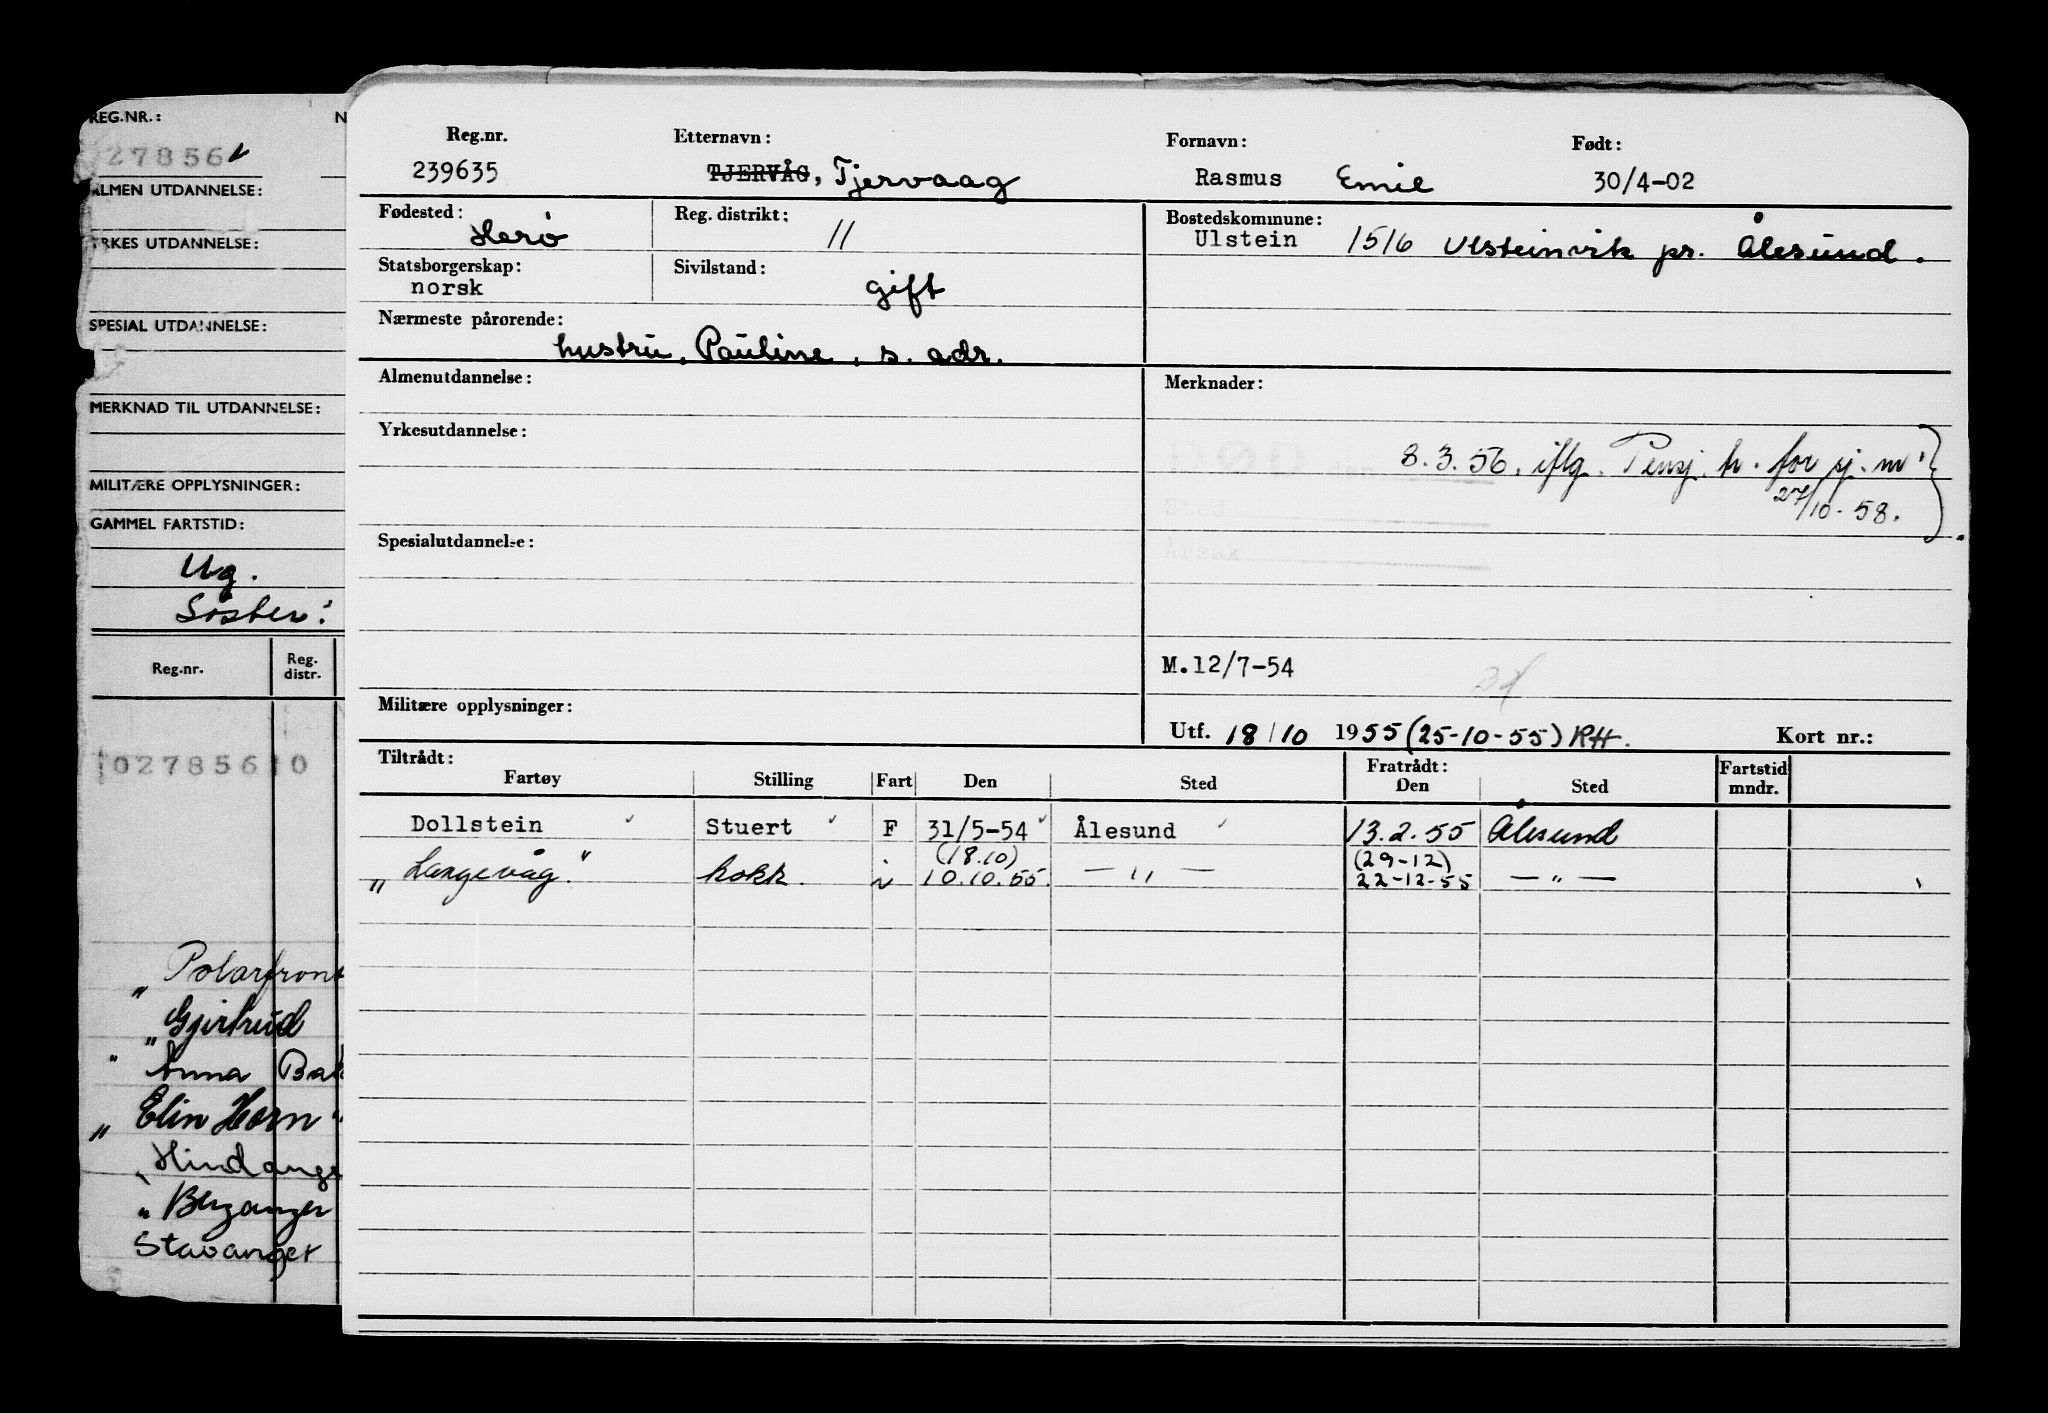 REG.NR.: N
027856
ALMEN UTDANNELSE:
YRKES UTDANNELSE:
SPESIAL UTDANNELSE:
MERKNAD TIL UTDANNELSE:
MILITÆRE OPPLYSNINGER:
GAMMEL FARTSTID:
Ug.
Søsten:
Reg.nr. Reg. distr.
027856 0
„Polarfront
„Gjertrud
" Anna Bak
„Elin Horn"
„Hindanger
„Berganger
Stavanger
Reg.nr. Etternavn: Fornavn: Født:
239635 TJERVÅG, Tjervaag Rasmus Emil 30/4-02
Fødested: Herø Reg. distrikt: 11 Bostedskommune:
Ulstein 1516 Ulsteinvik pr. Ålesund.
Statsborgerskap: Sivilstand:
norsk gift
Nærmeste pårørende:
hustru, Pauline, s. adr.
Almenutdannelse: Merknader:
Yrkesutdannelse:
DØD den 8.3.56. iflg. Pensj. tr. for sj.m.
27/10-58.
Sted
Årsak
Spesialutdannelse:
M.12/7-54
Militære opplysninger:
Utf. 18/10 1955 (25-10-55) RH. Kort nr.:
Tiltrådt: Fratrådt:
Fartøy Stilling Fart Den Sted Den Sted Fartstid mndr.
Dollstein Stuert F 31/5-54 Ålesund 13.2.55 Ålesund
(18.10) (29-12)
„Langevåg." kokk. i 10.10.55. — " — 22-12-55 — " —